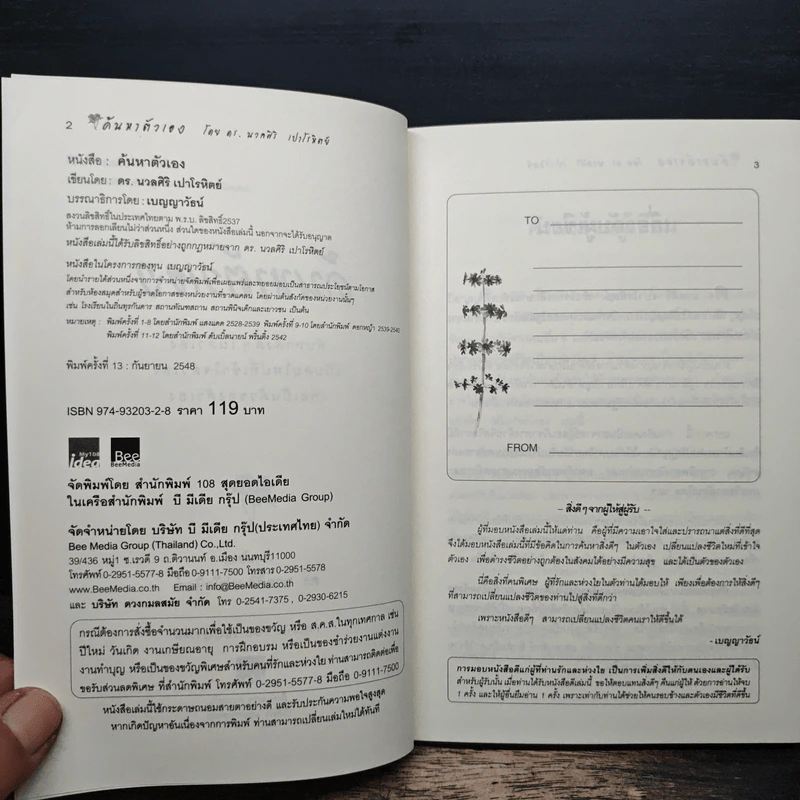 2 ค้นหาตัวเอง โดย ดร. นวลศิริ เปาโรหิตย์
หนังสือ : ค้นหาตัวเอง
เขียนโดย : ดร. นวลศิริ เปาโรหิตย์
บรรณาธิการโดย : เบญญาวัธน์
สงวนลิขสิทธิ์ในประเทศไทยตาม พ.ร.บ. ลิขสิทธิ์2537
ห้ามการลอกเลียนไม่ว่าส่วนหนึ่ง ส่วนใดของหนังสือเล่มนี้ นอกจากจะได้รับอนุญาต
หนังสือเล่มนี้ได้รับลิขสิทธิ์อย่างถูกกฎหมายจาก ดร. นวลศิริ เปาโรหิตย์
หนังสือในโครงการกองทุน เบญญาวัธน์
โดยนำรายได้ส่วนหนึ่งจากการจำหน่ายจัดพิมพ์เพื่อเผยแพร่และทยอยมอบเป็นสาธารณประโยชน์ตามโอกาส
สำหรับห้องสมุดสำหรับผู้ขาดโอกาสของหน่วยงานที่ขาดแคลน โดยผ่านต้นสังกัดของหน่วยงานนั้นๆ
เช่น โรงเรียนในถิ่นทุรกันดาร สถานทัณฑสถาน สถานพินิจเด็กและเยาวชน เป็นต้น
หมายเหตุ : พิมพ์ครั้งที่ 1-8 โดยสำนักพิมพ์ แสงแดด 2528-2539 พิมพ์ครั้งที่ 9-10 โดยสำนักพิมพ์ ดอกหญ้า 2539-2540
พิมพ์ครั้งที่ 11-12 โดยสำนักพิมพ์ ดับเบิ้ลนายน์ พริ้นติ้ง 2542
พิมพ์ครั้งที่ 13 : กันยายน 2548
ISBN 974-93203-2-8 ราคา 119 บาท
My108 idea Bee BeeMedia
จัดพิมพ์โดย สำนักพิมพ์ 108 สุดยอดไอเดีย
ในเครือสำนักพิมพ์ บี มีเดีย กรุ๊ป (BeeMedia Group)
จัดจำหน่ายโดย บริษัท บี มีเดีย กรุ๊ป(ประเทศไทย) จำกัด
Bee Media Group (Thailand) Co.,Ltd.
39/436 หมู่1 ซ.เรวดี 9 ถ.ติวานนท์ อ.เมือง นนทบุรี11000
โทรศัพท์ 0-2951-5577-8 มือถือ 0-9111-7500 โทรสาร 0-2951-5578
www.BeeMedia.co.th Email : info@BeeMedia.co.th
และ บริษัท ดวงกมลสมัย จำกัด โทร 0-2541-7375 , 0-2930-6215
กรณีต้องการสั่งซื้อจำนวนมากเพื่อใช้เป็นของขวัญ หรือ ส.ค.ส.ในทุกเทศกาล เช่น
ปีใหม่ วันเกิด งานเกษียณอายุ การฝึกอบรม หรือเป็นของชำร่วยงานแต่งงาน
งานทำบุญ หรือเป็นของขวัญพิเศษสำหรับคนที่รักและห่วงใย ท่านสามารถติดต่อเพื่อ
ขอรับส่วนลดพิเศษ ที่สำนักพิมพ์ โทรศัพท์ 0-2951-5577-8 มือถือ 0-9111-7500
หนังสือเล่มนี้ใช้กระดาษถนอมสายตาอย่างดี และรับประกันความพอใจสูงสุด
หากเกิดปัญหาอันเนื่องจากการพิมพ์ ท่านสามารถเปลี่ยนเล่มใหม่ได้ทันที
3
TO
FROM
-- สิ่งดีๆจากผู้ให้สู่ผู้รับ --
ผู้ที่มอบหนังสือเล่มนี้ให้แด่ท่าน คือผู้ที่มีความเอาใจใส่และปรารถนาแต่สิ่งที่ดีที่สุด
จึงได้มอบหนังสือเล่มนี้ที่มีข้อคิดในการค้นหาสิ่งดีๆ ในตัวเอง เปลี่ยนแปลงชีวิตใหม่ที่เข้าใจ
ตัวเอง เพื่อดำรงชีวิตอย่างถูกต้องในสังคมได้อย่างมีความสุข และได้เป็นตัวของตัวเอง
นี่คือสิ่งที่คนพิเศษ ผู้ที่รักและห่วงใยในตัวท่านได้มอบให้ เพียงเพื่อต้องการให้สิ่งดีๆ
ที่สามารถเปลี่ยนแปลงชีวิตของท่านไปสู่สิ่งที่ดีกว่า
เพราะหนังสือดีๆ สามารถเปลี่ยนแปลงชีวิตคนเราให้ดีขึ้นได้
- เบญญาวัธน์
การมอบหนังสือดีแก่ผู้ที่ท่านรักและห่วงใย เป็นการเพิ่มสิ่งดีให้กับตนเองและผู้ได้รับ
สำหรับผู้รับนั้น เมื่อท่านได้รับหนังสือดีเล่มนี้ ขอให้ตอบแทนสิ่งดีๆ คืนแก่ผู้ให้ ด้วยการอ่านให้จบ
1 ครั้ง และให้ผู้อื่นยืมอ่าน 1 ครั้ง เพราะเท่ากับท่านได้ช่วยให้คนรอบข้างและตัวเองมีชีวิตที่ดีขึ้น